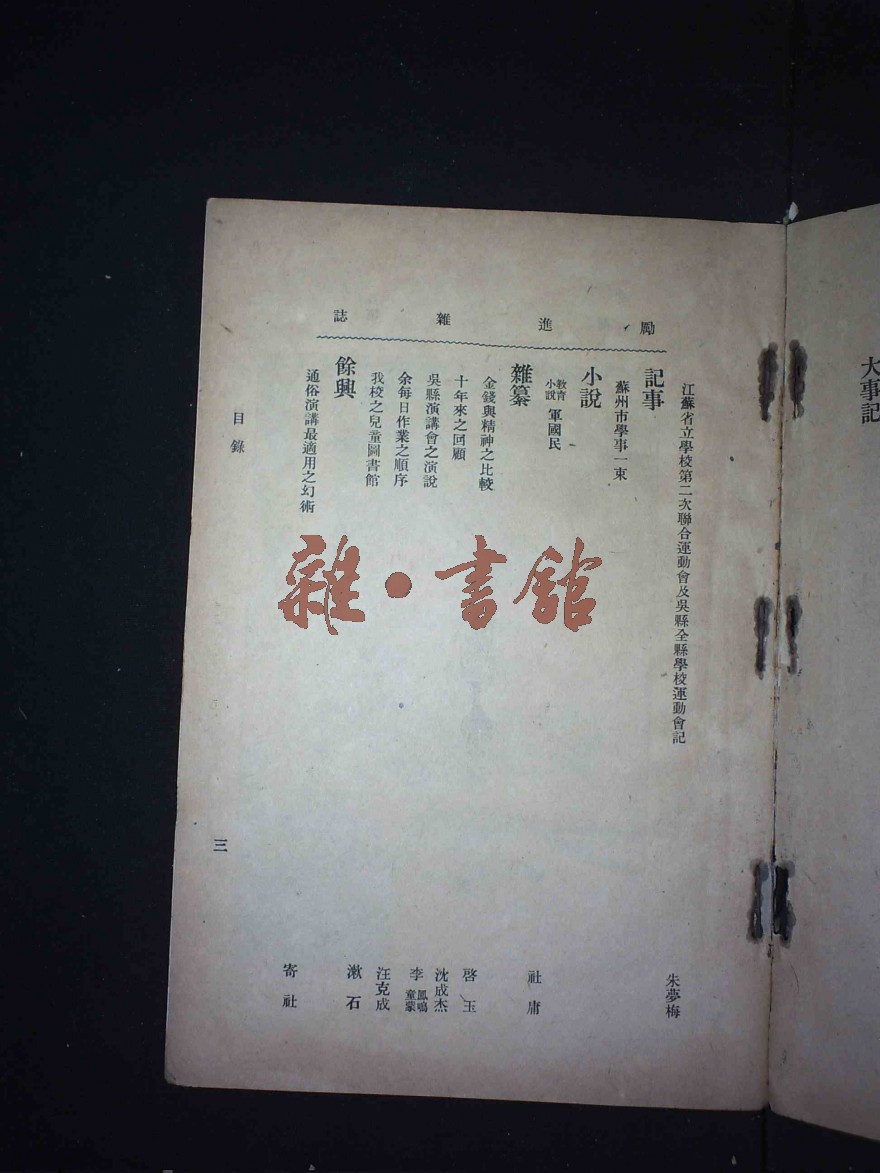 大事記
勵進雜誌
江蘇省立學校第二次聯合運動會及吳縣全縣學校運動會記 朱夢梅
記事
蘇州市學事一束
小說
教育小說 軍國民 社庸
雜纂
金錢與精神之比較 啓玉
十年來之回顧 沈成杰
吳縣演講會之演說 李鳳鳴 童蒙
余每日作業之順序 汪克成
我校之兒童圖書館 漱石
餘興
通俗演講最適用之幻術 寄社
目錄
三
雜·書館